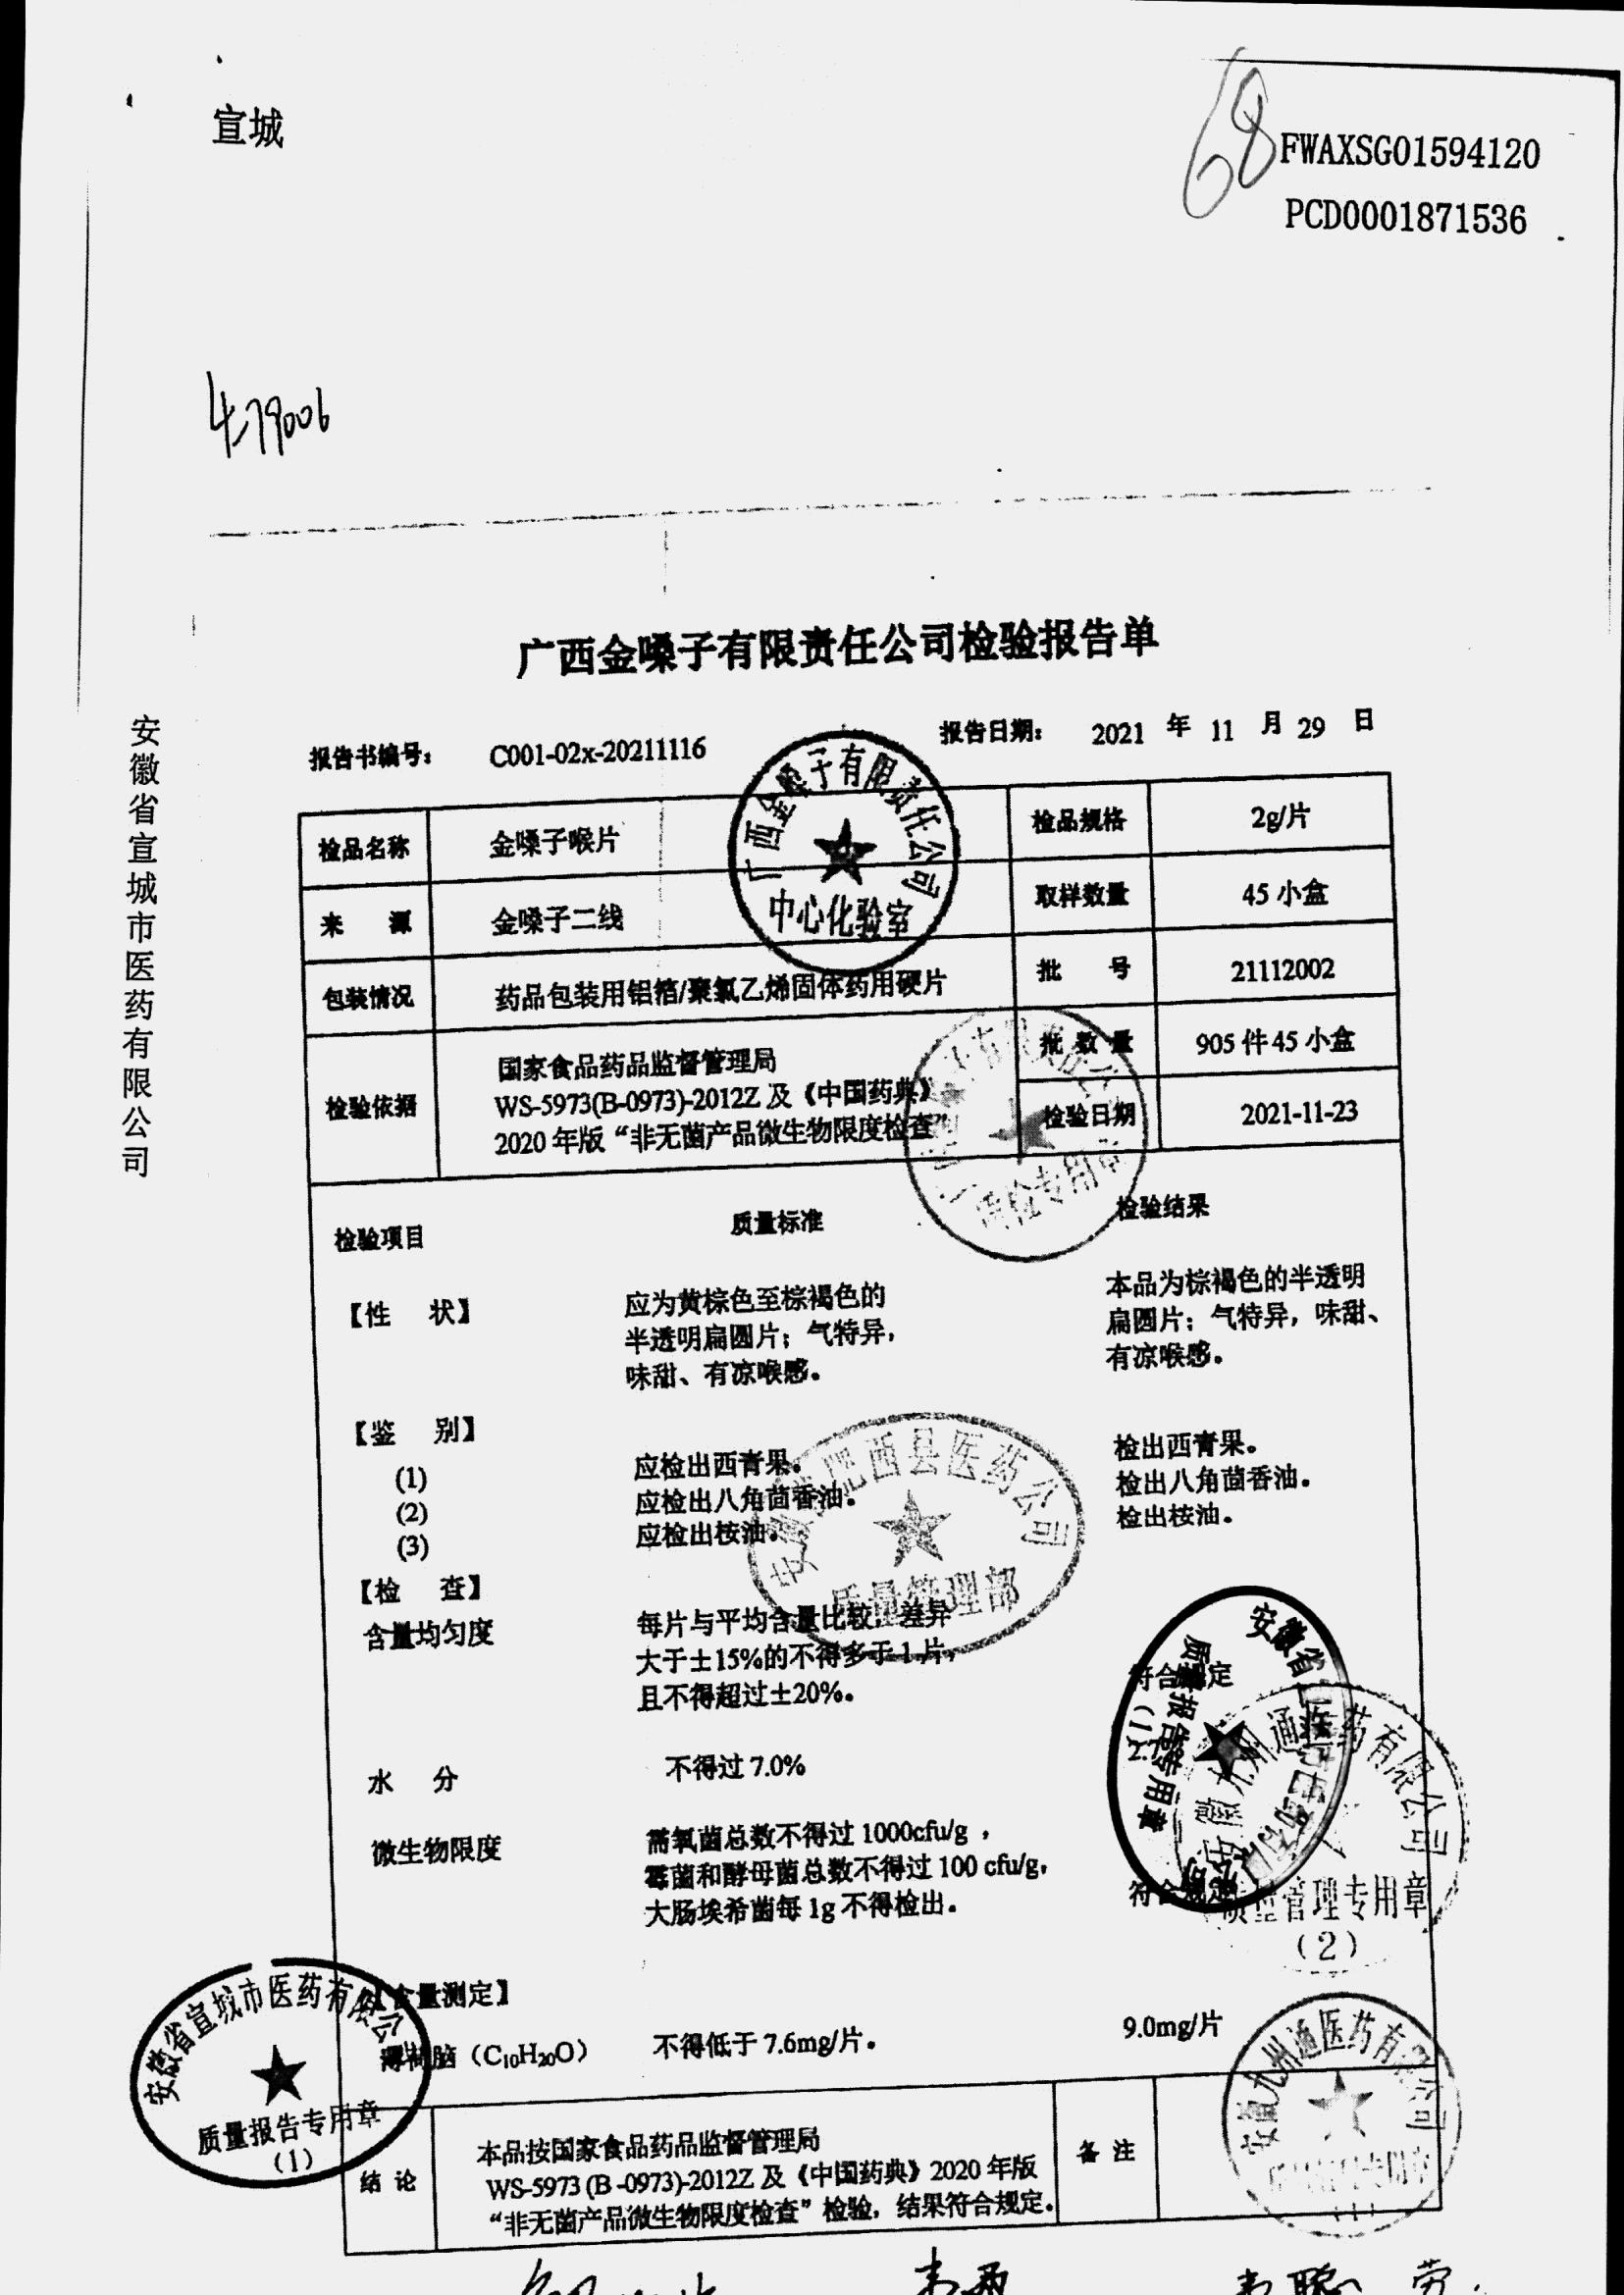 宣城
68
FWAXSG01594120
PCD0001871536
479006
安徽省宣城市医药有限公司
广西金嗓子有限责任公司检验报告单
报告书编号： C001-02x-20211116 报告日期： 2021 年 11 月 29 日
广西金嗓子有限责任公司
中心化验室
检品名称 金嗓子喉片 检品规格 2g/片
来 源 金嗓子二线 取样数量 45 小盒
包装情况 药品包装用铝箔/聚氯乙烯固体药用硬片 批 号 21112002
检验依据 国家食品药品监督管理局
WS-5973(B-0973)-2012Z 及《中国药典》
2020 年版“非无菌产品微生物限度检查”
批 数 量 905 件 45 小盒
检验日期 2021-11-23
质检专用章
检验项目 质量标准 检验结果
【性 状】 应为黄棕色至棕褐色的 本品为棕褐色的半透明
半透明扁圆片；气特异， 扁圆片；气特异，味甜、
味甜、有凉喉感。 有凉喉感。
【鉴 别】
(1) 应检出西青果。 检出西青果。
(2) 应检出八角茴香油。 检出八角茴香油。
(3) 应检出桉油。 检出桉油。
安徽省肥西县医药公司
质量管理部
【检 查】
含量均匀度 每片与平均含量比较，差异
大于±15%的不得多于 1 片，
且不得超过±20%。 符合规定
水 分 不得过 7.0%
微生物限度 需氧菌总数不得过 1000cfu/g ，
霉菌和酵母菌总数不得过 100 cfu/g，
大肠埃希菌每 1g 不得检出。 符合规定
质量报告专用章
安徽九州通医药有限公司
质量管理专用章
（2）
【含量测定】
薄荷脑（C₁₀H₂₀O） 不得低于 7.6mg/片。 9.0mg/片
安徽省宣城市医药有限公司
质量报告专用章
（1）
安徽九州通医药有限公司
（1）
结 论 本品按国家食品药品监督管理局
WS-5973 (B -0973)-2012Z 及《中国药典》2020 年版
“非无菌产品微生物限度检查”检验，结果符合规定。
备 注